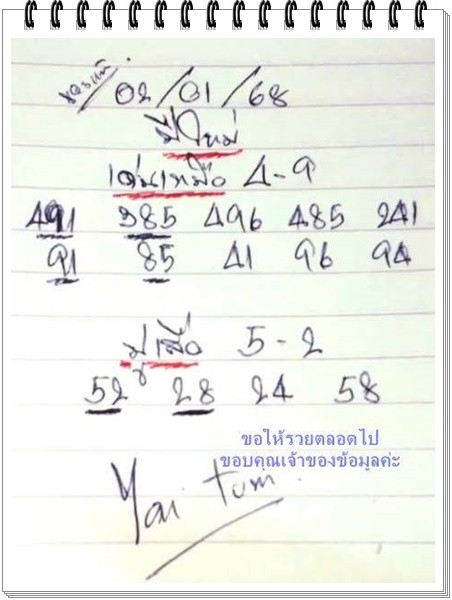 02/01/68
ปีใหม่
เด่นเหนือ 4-9
491 985 496 485 241
91 85 41 96 94
5-2
52 28 24 58
ขอให้รวยตลอดไป
ขอบคุณเจ้าของข้อมูลค่ะ
Yai Tum